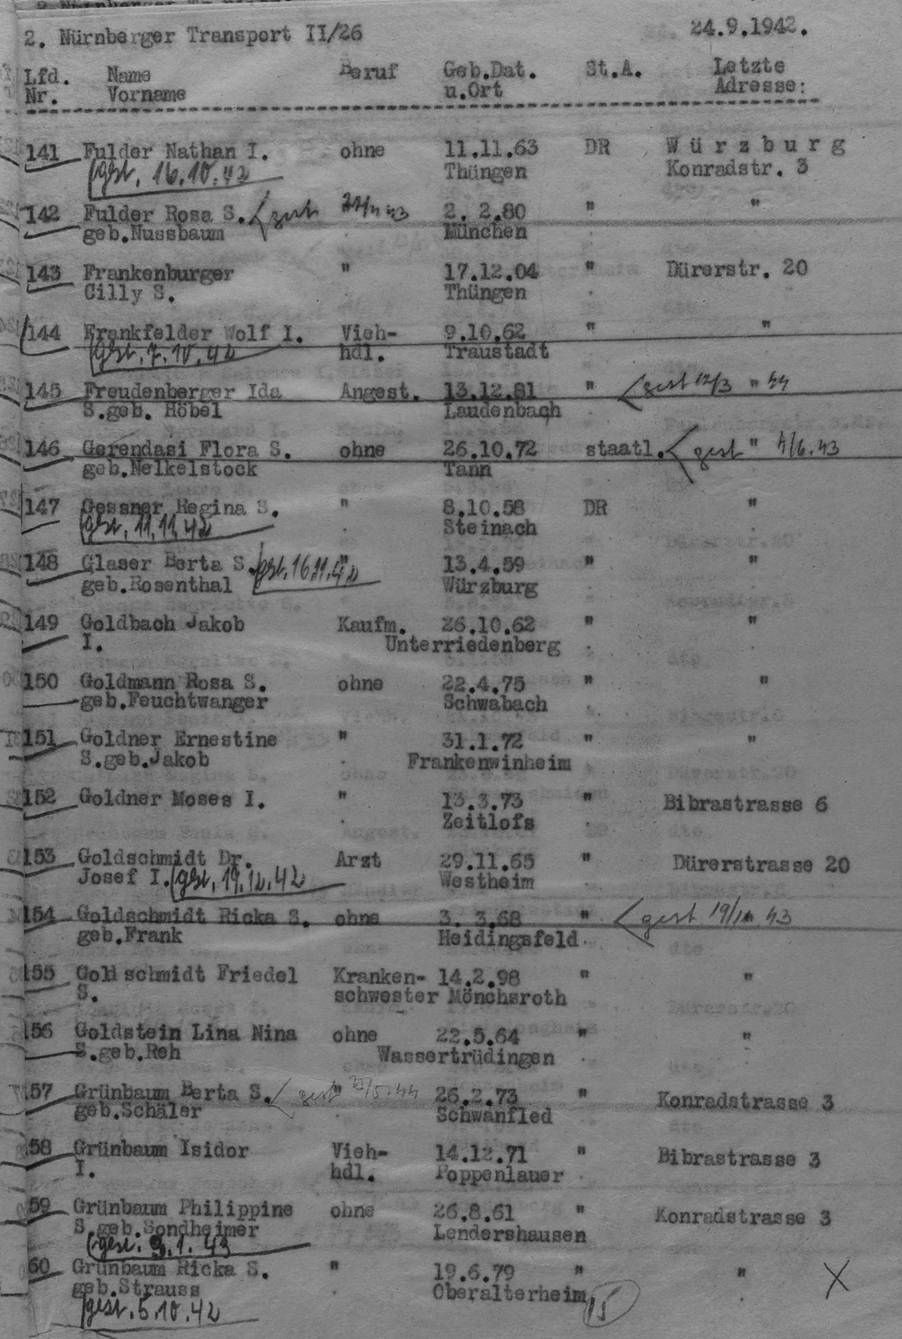 2. Nürnberger Transport II/26 24.9.1942.
Lfd. Name Beruf Geb.Dat. St.A. Letzte
Nr. Vorname u.Ort Adresse:
141 Fulder Nathan I. ohne 11.11.63 DR Würzburg
gest. 16.10.42 Thüngen Konradstr. 3
142 Fulder Rosa S. gest 43 2. 2.80 " "
geb.Nussbaum München
143 Frankenburger " 17.12.04 " Dürerstr. 20
Cilly S. Thüngen
144 Frankfelder Wolf I. Vieh- 9.10.62 " "
gest. 7.10.42 hdl. Traustadt
145 Freudenberger Ida Angest. 13.12.81 " gest 12/3 " 44
S.geb. Höbel Laudenbach
146 Gerendasi Flora S. ohne 26.10.72 staatl. gest " 4/6.43
geb.Nelkelstock Tann
147 Gessner Regina S. " 8.10.58 DR "
gest. 11.11.42 Steinach
148 Glaser Berta S. gest. 16.11.42 " 13.4.59 " "
geb.Rosenthal Würzburg
149 Goldbach Jakob Kaufm. 26.10.62 " "
I. Unterriedenberg
150 Goldmann Rosa S. ohne 22.4.75 " "
geb.Feuchtwanger Schwabach
151 Goldner Ernestine " 31.1.72 " "
S.geb.Jakob Frankenwinheim
152 Goldner Moses I. " 13.3.73 " Bibrastrasse 6
Zeitlofs
153 Goldschmidt Dr. Arzt 29.11.65 " Dürerstrasse 20
Josef I. gest. 19.12.42 Westheim
154 Goldschmidt Ricka S. ohne 3. 3.68 " gest 43
geb.Frank Heidingsfeld
155 Goldschmidt Friedel Kranken- 14.2.98 " "
S. schwester Mönchsroth
156 Goldstein Lina Nina ohne 22.5.64 " "
S.geb.Reh Wassertrüdingen
157 Grünbaum Berta S. gest " /5.44 26.2.73 " Konradstrasse 3
geb.Schäler Schwanfled
58 Grünbaum Isidor Vieh- 14.12.71 " Bibrastrasse 3
I. hdl. Poppenlauer
59 Grünbaum Philippine ohne 26.8.61 " Konradstrasse 3
S.geb.Sondheimer Lendershausen
gest. 9.1.43
60 Grünbaum Ricka S. " 19.6.79 " " X
geb.Strauss Oberalterheim 15
gest. 5.10.42